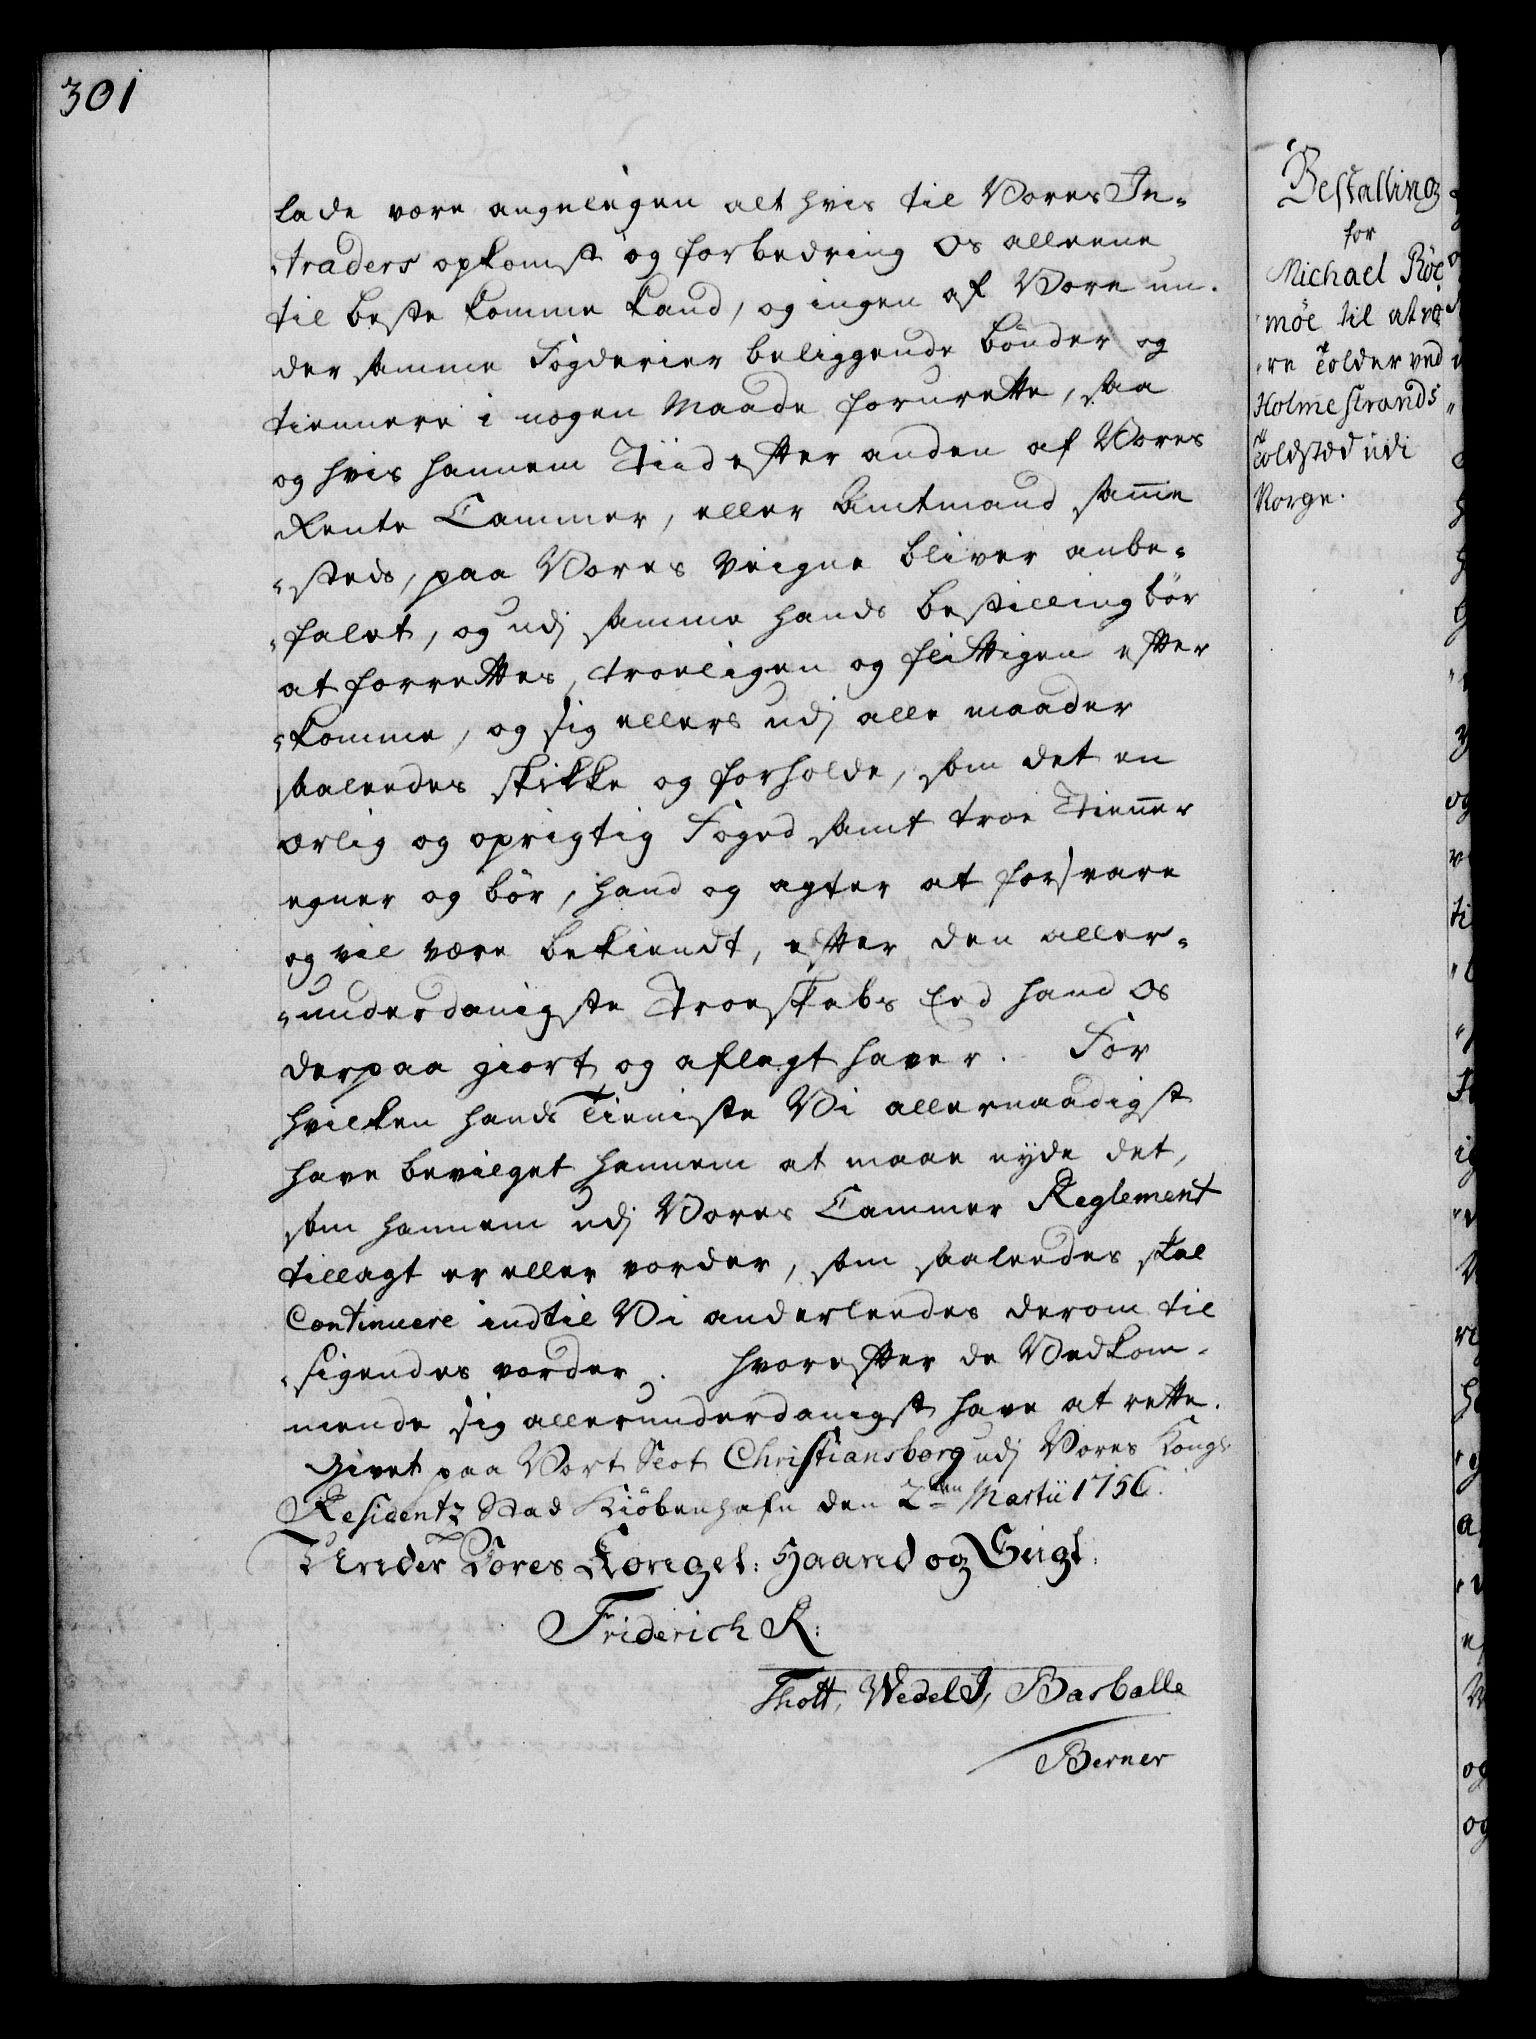 301
lade være angelegen alt hvis til Vores In-
„traders opkomst og forbedring Os alleene
til beste komme kand, og ingen af Vore un-
der samme Fogderier beliggende bönder og
tiennere i nogen Maade forurette, saa
og hvis hannem Tiid efter anden af Vores
Rente Cammer, eller Amtmand samme
„steds, paa Vores Veigne bliver anbe-
„falet, og udj samme hands bestilling bör
at forrettes, troeligen og flittigen efter
„komme, og sig ellers udj alle maader
saaleedes skikke og forholde, som det en
ærlig og oprigtig Foged samt troe Tienner
egner og bör, hand og agter at forsvare
og vil være bekiendt, efter den aller-
„underdanigste Troeskabs Eed hand Os
derpaa giort og aflagt haver. For
hvilken hands Tieniste Vi allernaadigst
have bevilget hannem at maae nyde det,
som hannem udj Vores Cammer Reglement
tillagt er eller vorder, som saaleedes skal
Continuere indtil Vi anderleedes derom til
„sigendes vorder. Hvorefter de Vedkom-
mende sig allerunderdanigst have at rette.
Givet paa Vort Slot Christiansborg udj Vores Kongl:
Residentz Stad Kiöbenhafn den 2den Martii 1756.
Under Vores Kongel: Haand og Seigl:
Friderich R:
Thott, Wedel J, Barballe
Berner
Bestalling
for
Michael Röe
möe til at væ
„re Tolder ved
Holmestrands
Toldsted udi
Norge.